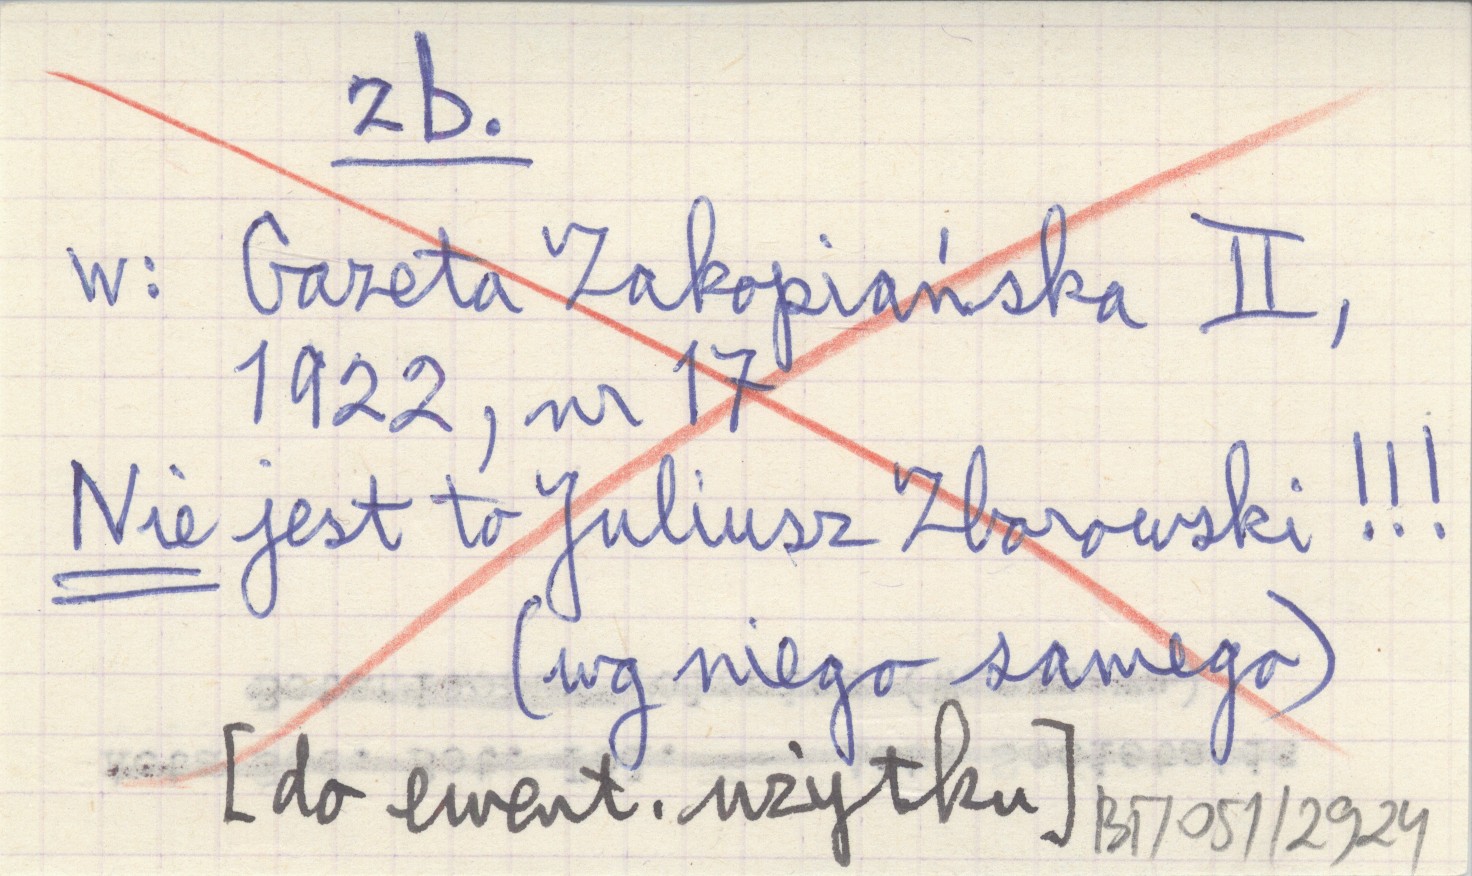 zb.
w: Gazeta Zakopiańska II,
1922, nr 17
Nie jest to Juliusz Zborowski !!!
(wg niego samego)
[do ewent. użytku]
BT/051/2924